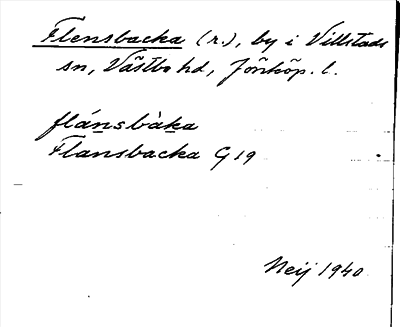 Flensbacka (r.), by i Villstads
sn, Västbo hd, Jönköp. l.
flánsbàka
Flansbacka G 19
Neij 1940